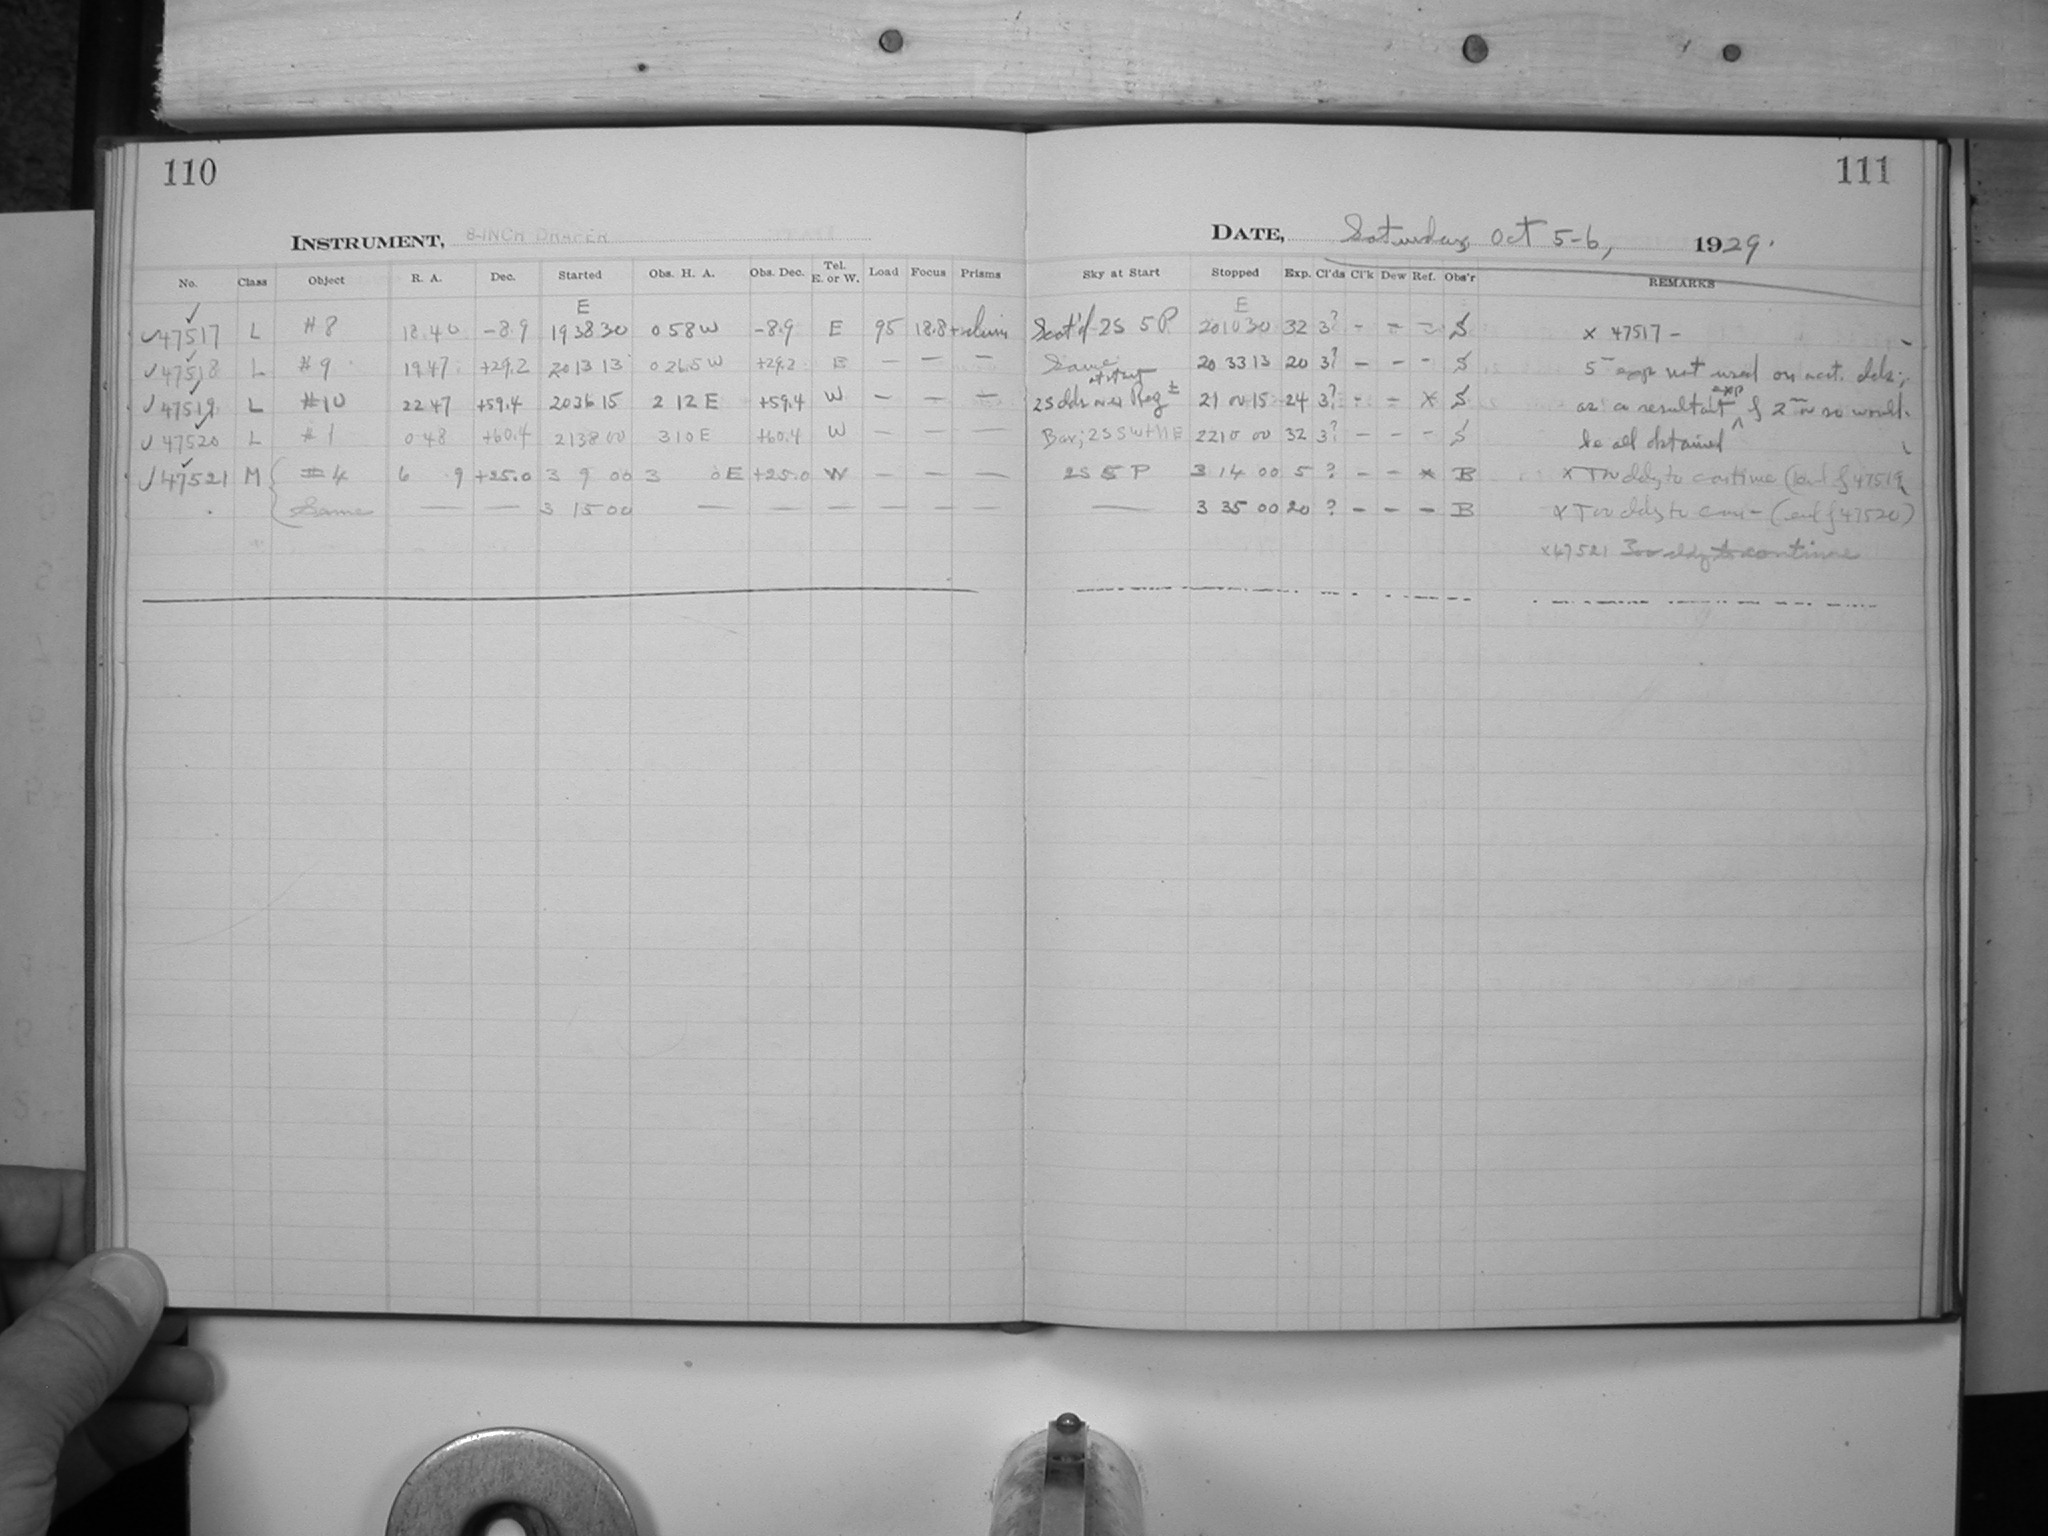 110
111
INSTRUMENT, 8-INCH DRAPER
DATE, Saturday Oct 5-6, 1929.
No. Class Object R. A. Dec. Started Obs. H. A. Obs. Dec. Tel. E. or W. Load Focus Prisms Sky at Start Stopped Exp. Cl'ds Cl'k Dew Ref. Obs'r REMARKS
E E
✓47517 L #8 18.40 -8.9 19 38 30 0 58 W -8.9 E 95 18.8 2S 5 P 20 10 30 32 3? - - - S x 47517 -
✓47518 L #9 19 47 +29.2 20 13 13 0 26.5 W +29.2 E — — — Same 20 33 13 20 3? - - - S 5 exp not used on acct. clds;
✓47519 L #10 22 47 +59.4 20 36 15 2 12 E +59.4 W — — — 2S clds over Reg at start 21 00 15 24 3? - - x S as a resultant exp of 2 or so would
✓47520 L #1 0 48 +60.4 21 38 00 3 10 E +60.4 W — — — 22 10 00 32 3? - - - S be all obtained
✓47521 M #4 6 9 +25.0 3 9 00 3 0 E +25.0 W — — — 2S 5 P 3 14 00 5 ? - - x B x Too cldy to continue (end of 47519
Same — — 3 15 00 — — — — — — — 3 35 00 20 ? - - - B x Too cldy to con- (end of 47520)
x47521 Too cldy to continue